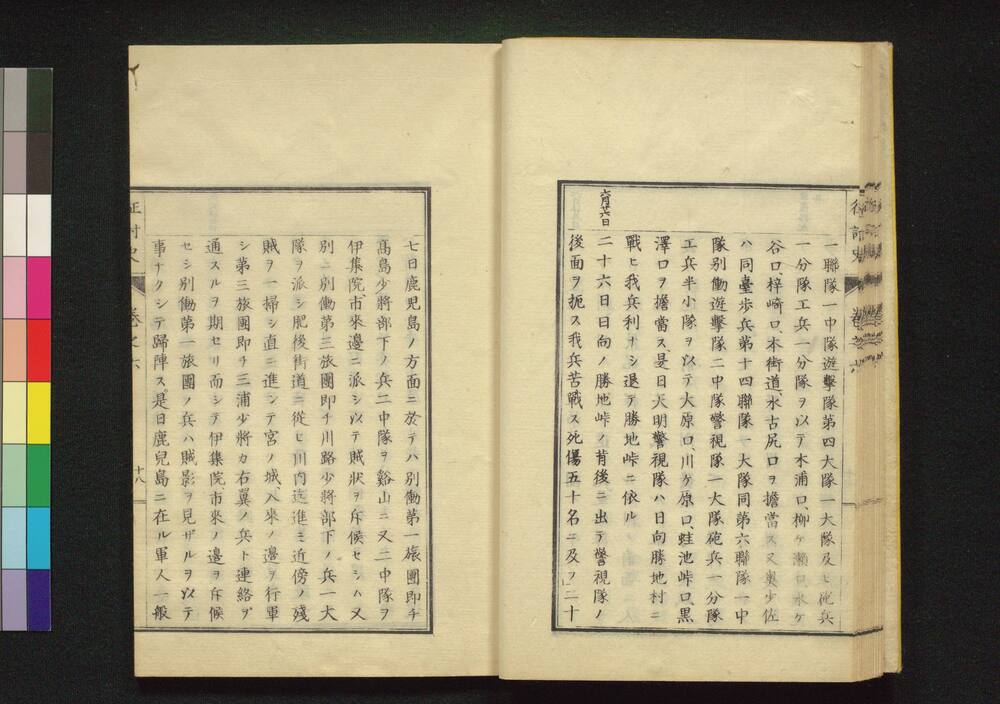 一聯隊一中隊遊擊隊第四大隊一大隊及ヒ砲兵
一分隊工兵一分隊ヲ以テ木浦口、柳ケ瀨口、水ケ
谷口、梓崎口、本街道、水古尻口ヲ擔當ス又奧少佐
ハ同臺步兵第十四聯隊一大隊同第六聯隊一中
隊別働遊擊隊二中隊警視隊一大隊砲兵一分隊
工兵半小隊ヲ以テ大原口、川ケ原口、蛙池峠口、黑
澤口ヲ擔當ス是日天明警視隊ハ日向勝地村ニ
戰ヒ我兵利ナシ退テ勝地峠ニ依ル
六月廿六日
二十六日日向ノ勝地峠ノ背後ニ出テ警視隊ノ
後面ヲ扼ス我兵苦戰ス死傷五十名ニ及フ二十
七日鹿児島ノ方面ニ於テハ別働第一旅團即チ
髙島少將部下ノ兵二中隊ヲ谿山ニ又二中隊ヲ
伊集院、市來邊ニ派シ以テ賊狀ヲ斥候セシハ又
別ニ別働第三旅團即チ川路少將部下ノ兵一大
隊ヲ派シ肥後街道ニ從ヒ川內迄進ミ近傍ノ殘
賊ヲ一掃シ直ニ進ンテ宮ノ城、入來ノ邊ヲ行軍
シ第三旅團即チ三浦少將カ右翼ノ兵ト連絡ヲ
通スルヲ期セリ而シテ伊集院、市來ノ邊ヲ斥候
セシ別働第一旅團ノ兵ハ賊影ヲ見ザルヲ以テ
事ナクシテ歸陣ス是日鹿兒島ニ在ル軍人一般
征討史
卷之六
十八